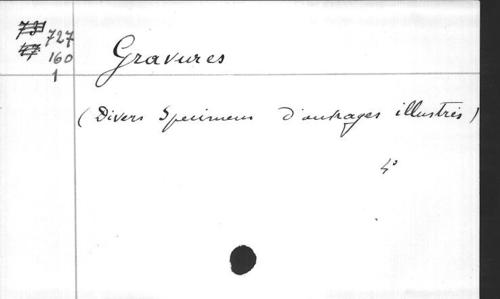 727
160
1
Gravures
(Divers Specimens d'ouvrages illustrés)
4°